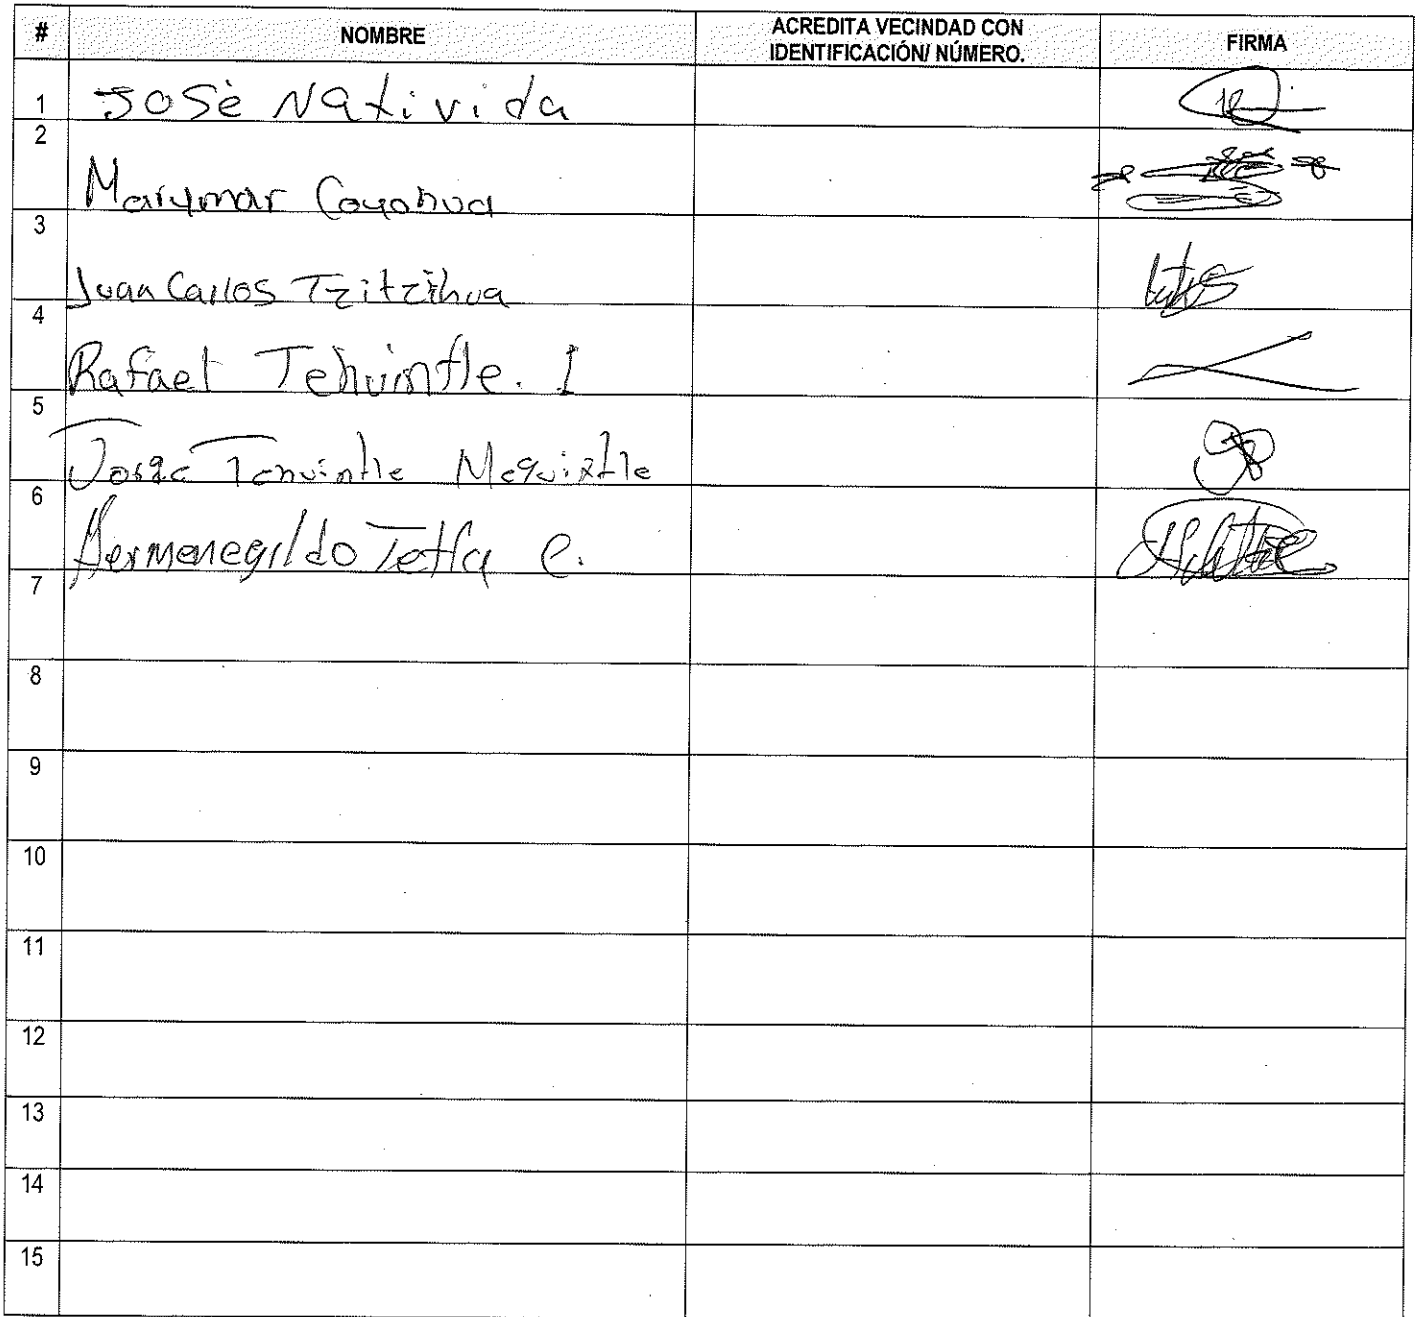 # NOMBRE ACREDITA VECINDAD CON IDENTIFICACIÓN/ NÚMERO. FIRMA
1 José Nativida
2 Marymar Coyohua
3 Juan Carlos Tzitzihua
4 Rafael Tehuintle. I
5 Jorge Tehuintle Mequixtle
6 Hermenegildo Tetla C.
7
8
9
10
11
12
13
14
15